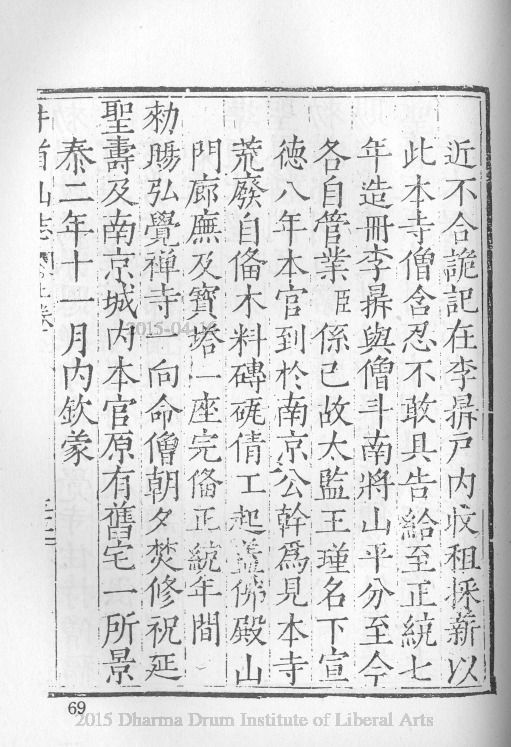 近不合詭記在李昪戸内收租採薪以
此本寺僧含忍不敢具告給至正統七
年造冊李昪與僧斗南將山平分至今
各自管業臣係已故太監王瑾名下宣
徳八年本官到於南京公幹爲見本寺
荒廢自俻木料磚砙倩工起盖佛殿山
門廊廡及寳塔一座完俻正統年間
勑賜弘覺禅寺一向命僧朝夕焚修祝延
聖壽及南京城内本官原有舊宅一所景
泰二年十一月内欽蒙
牛首山志
上卷
69
2015-04
2015 Dharma Drum Institute of Liberal Arts